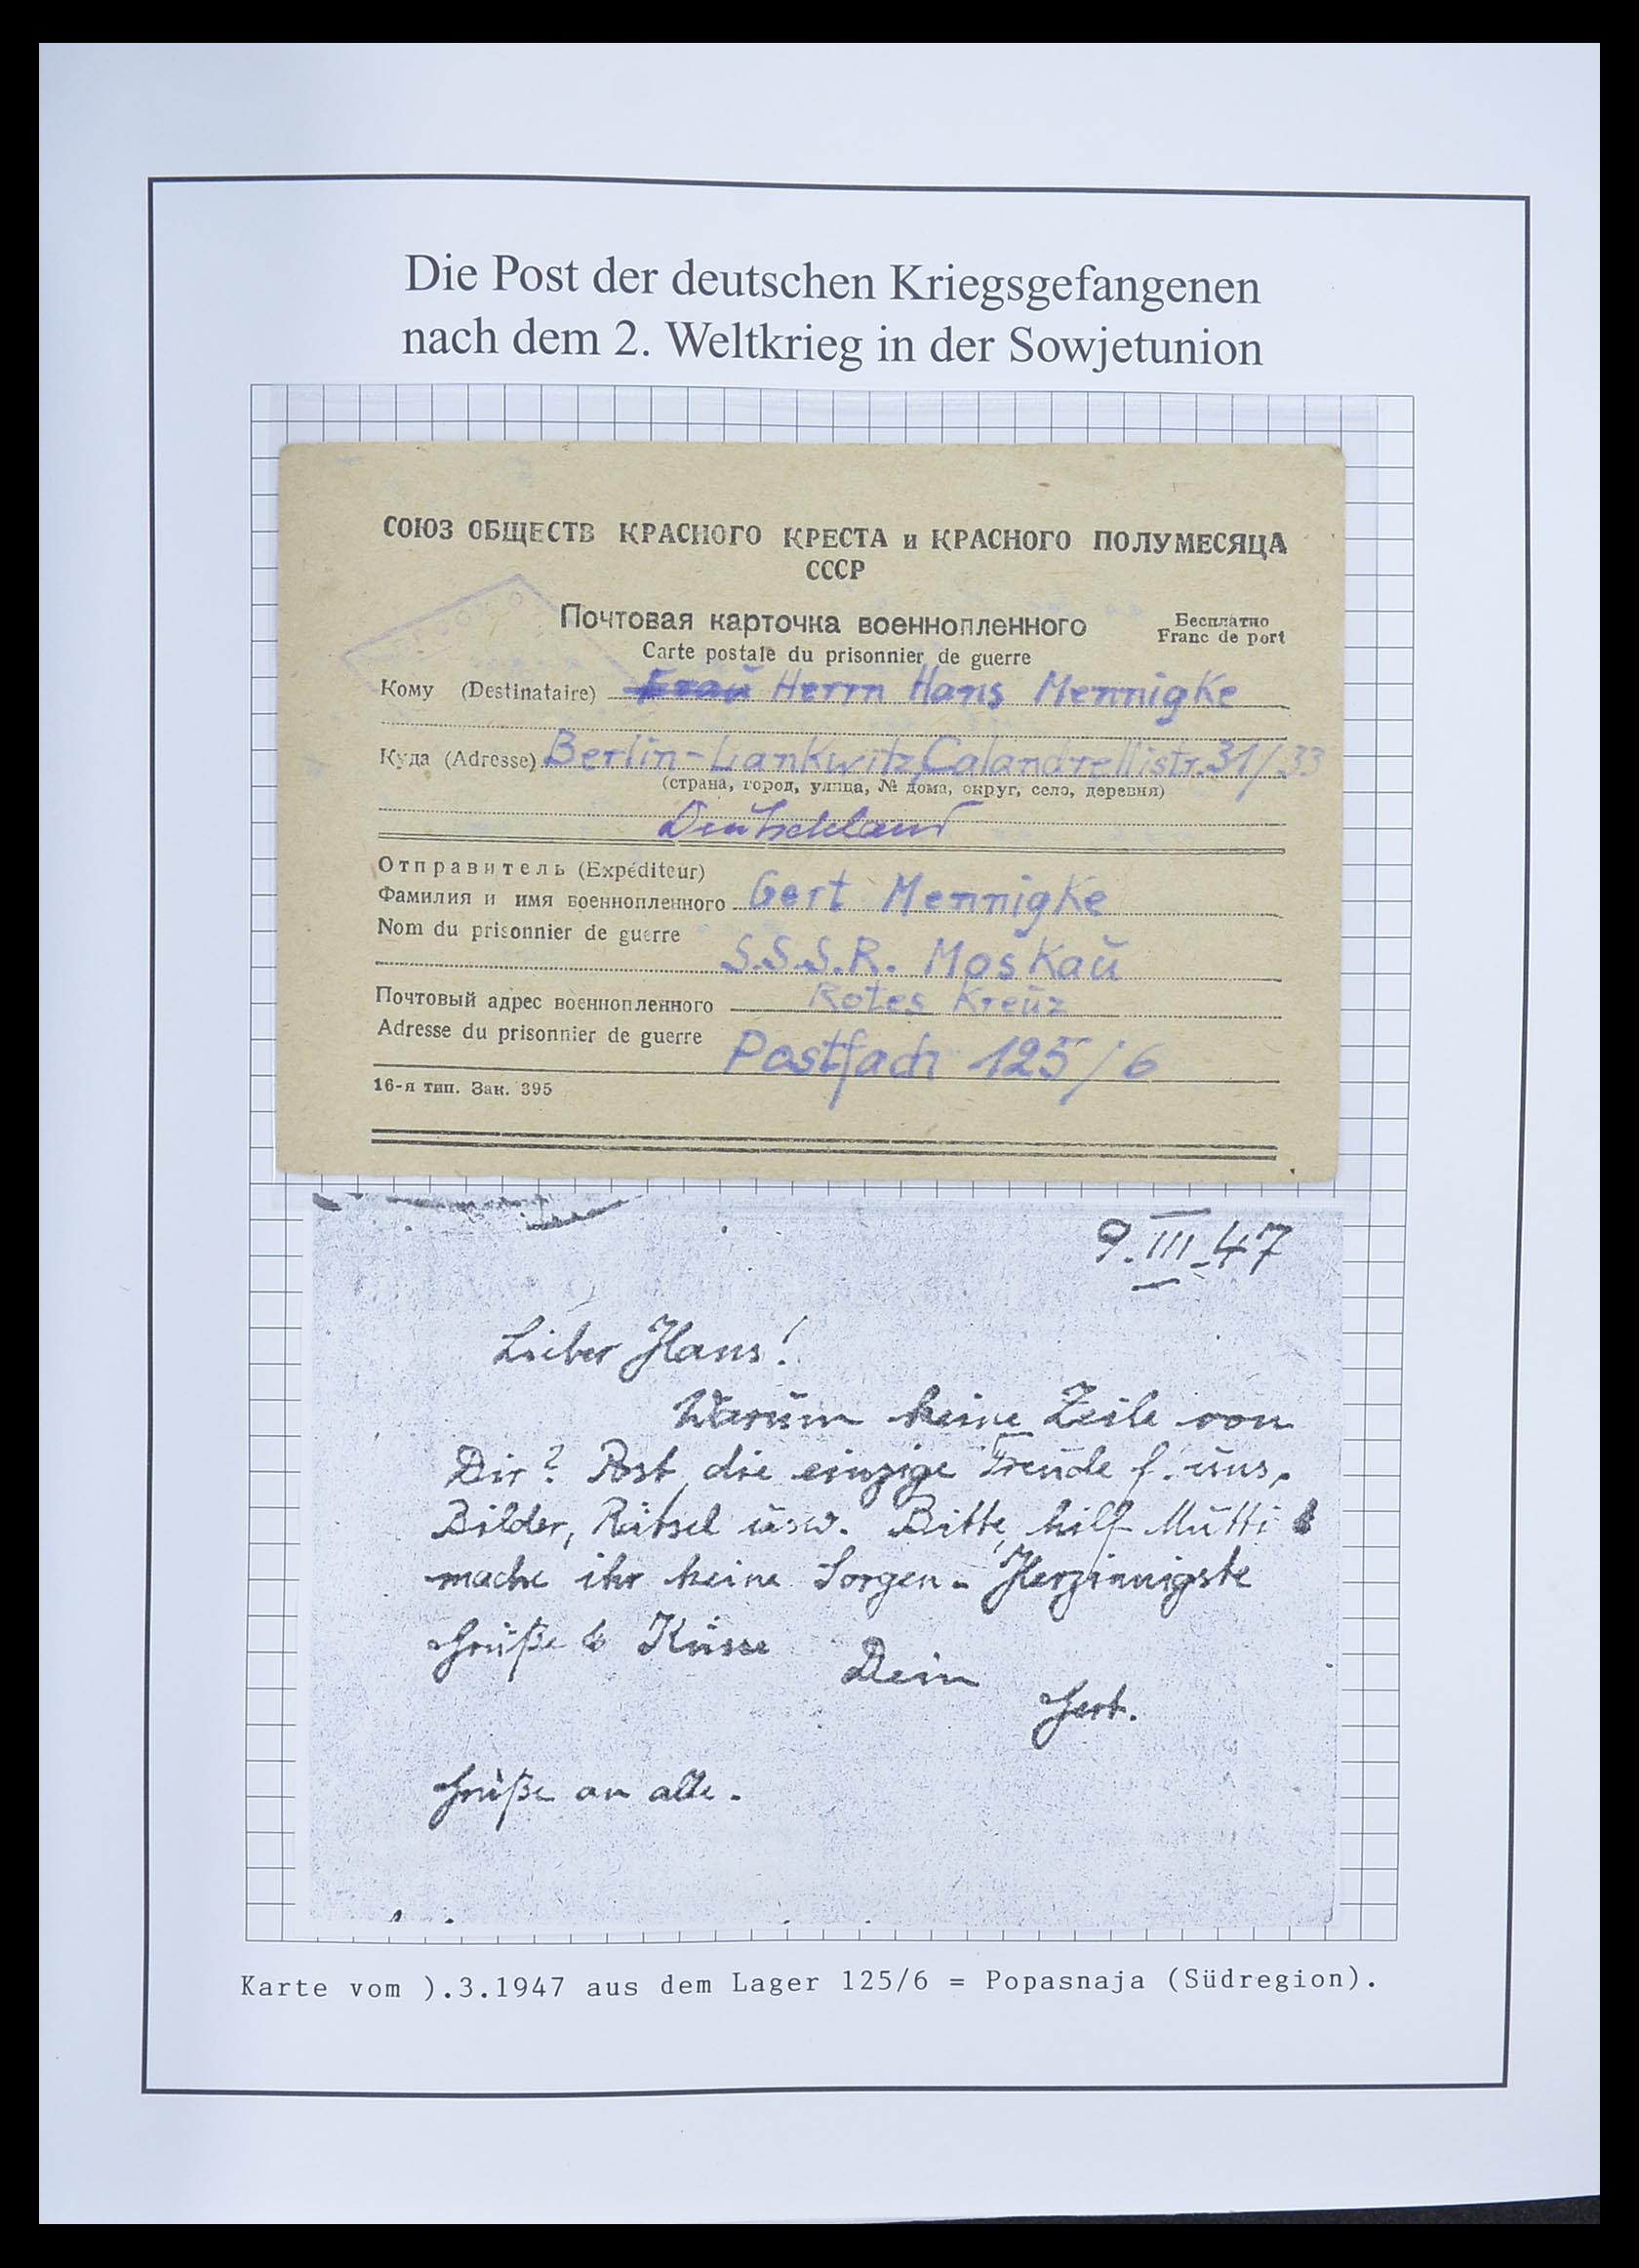 Die Post der deutschen Kriegsgefangenen
nach dem 2. Weltkrieg in der Sowjetunion
СОЮЗ ОБЩЕСТВ КРАСНОГО КРЕСТА и КРАСНОГО ПОЛУМЕСЯЦА
СССР
Почтовая карточка военнопленного
Бесплатно
Franc de port
Carte postale du prisonnier de guerre
Кому (Destinataire) Frau Herrn Hans Mennigke
Куда (Adresse) Berlin-Lankwitz, Calandrellistr. 31/33
(страна, город, улица, № дома, округ, село, деревня)
Deutschland
Отправитель (Expéditeur)
Фамилия и имя военнопленного Gert Mennigke
Nom du prisonnier de guerre
S.S.S.R. Moskau
Почтовый адрес военнопленного Rotes Kreuz
Adresse du prisonnier de guerre Postfach 125/6
16-я тип. Зак. 395
9.III.47
Lieber Hans!
Warum keine Zeile von
Dir? Post, die einzige Freude f. uns,
Bilder, Rätsel usw. Bitte, hilf Mutti &
mache ihr keine Sorgen. Herzinnigste
Grüße & Küsse
Dein
Gert.
Grüße an alle.
Karte vom ).3.1947 aus dem Lager 125/6 = Popasnaja (Südregion).